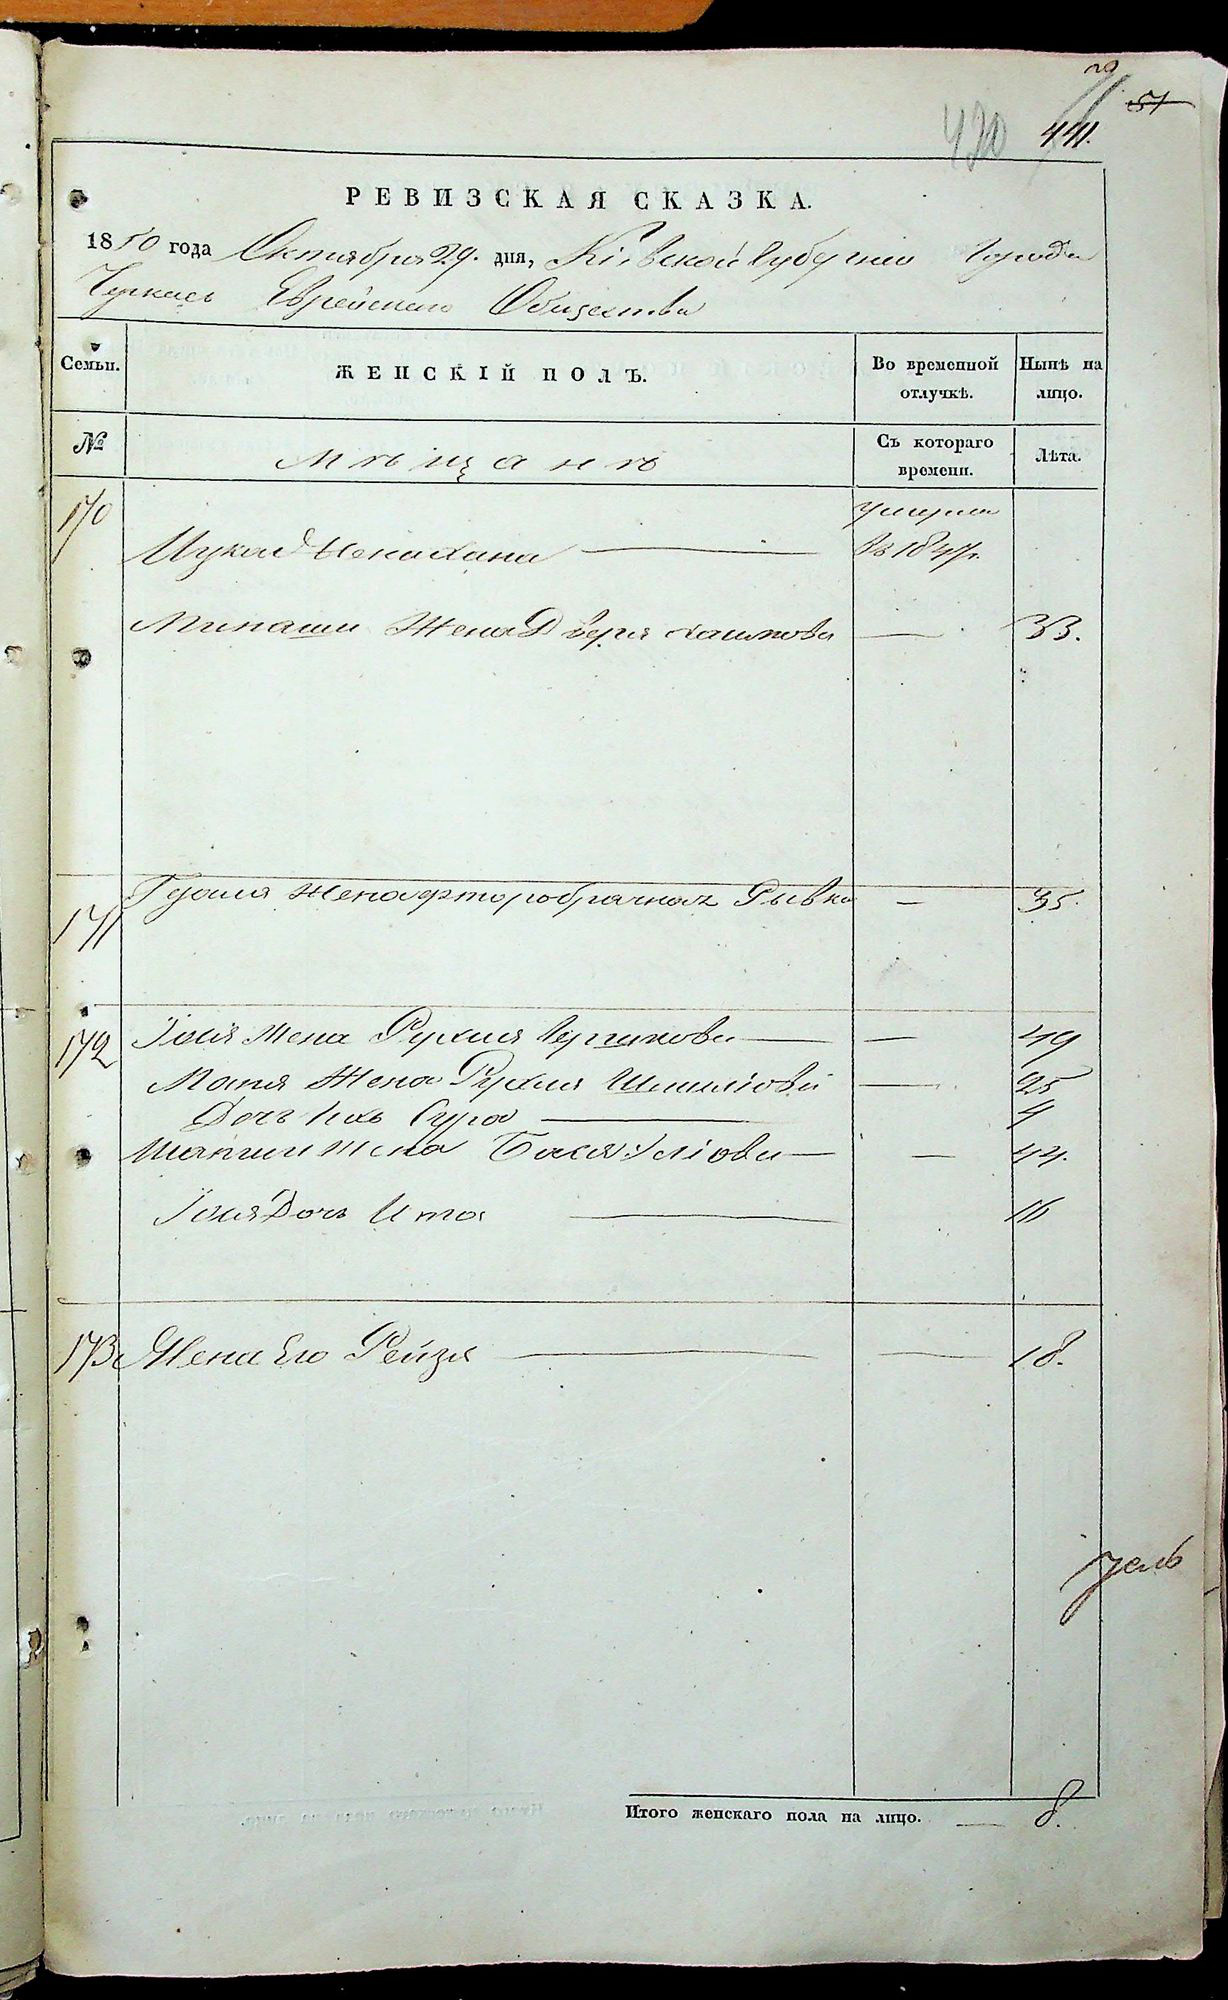 51
420 441.
РЕВИЗСКАЯ СКАЗКА.
1850 года Октября 29. дня, Кіевской Губерніи Города
Черкасъ Еврейскаго Общества
Семьи. ЖЕНСКІЙ ПОЛЪ. Во временной отлучкѣ. Нынѣ на лицо.
№ Мѣщанъ Съ котораго времени. Лѣта.
170 умерла
въ 1847г.
Минаши Жена Дверя Хаимова — 33.
171 Гдаля Жена второбрачная Рывка — 35.
172 Іося Жена Рухля — — 49
Жена Рухля Шмилiова — 25
Дочь Ихъ Сура — 4
Жена Бася — — 44.
Дочь Ита — 16
173 Жена Его Рейзя — — 18.
Итого женскаго пола на лицо. — 8.